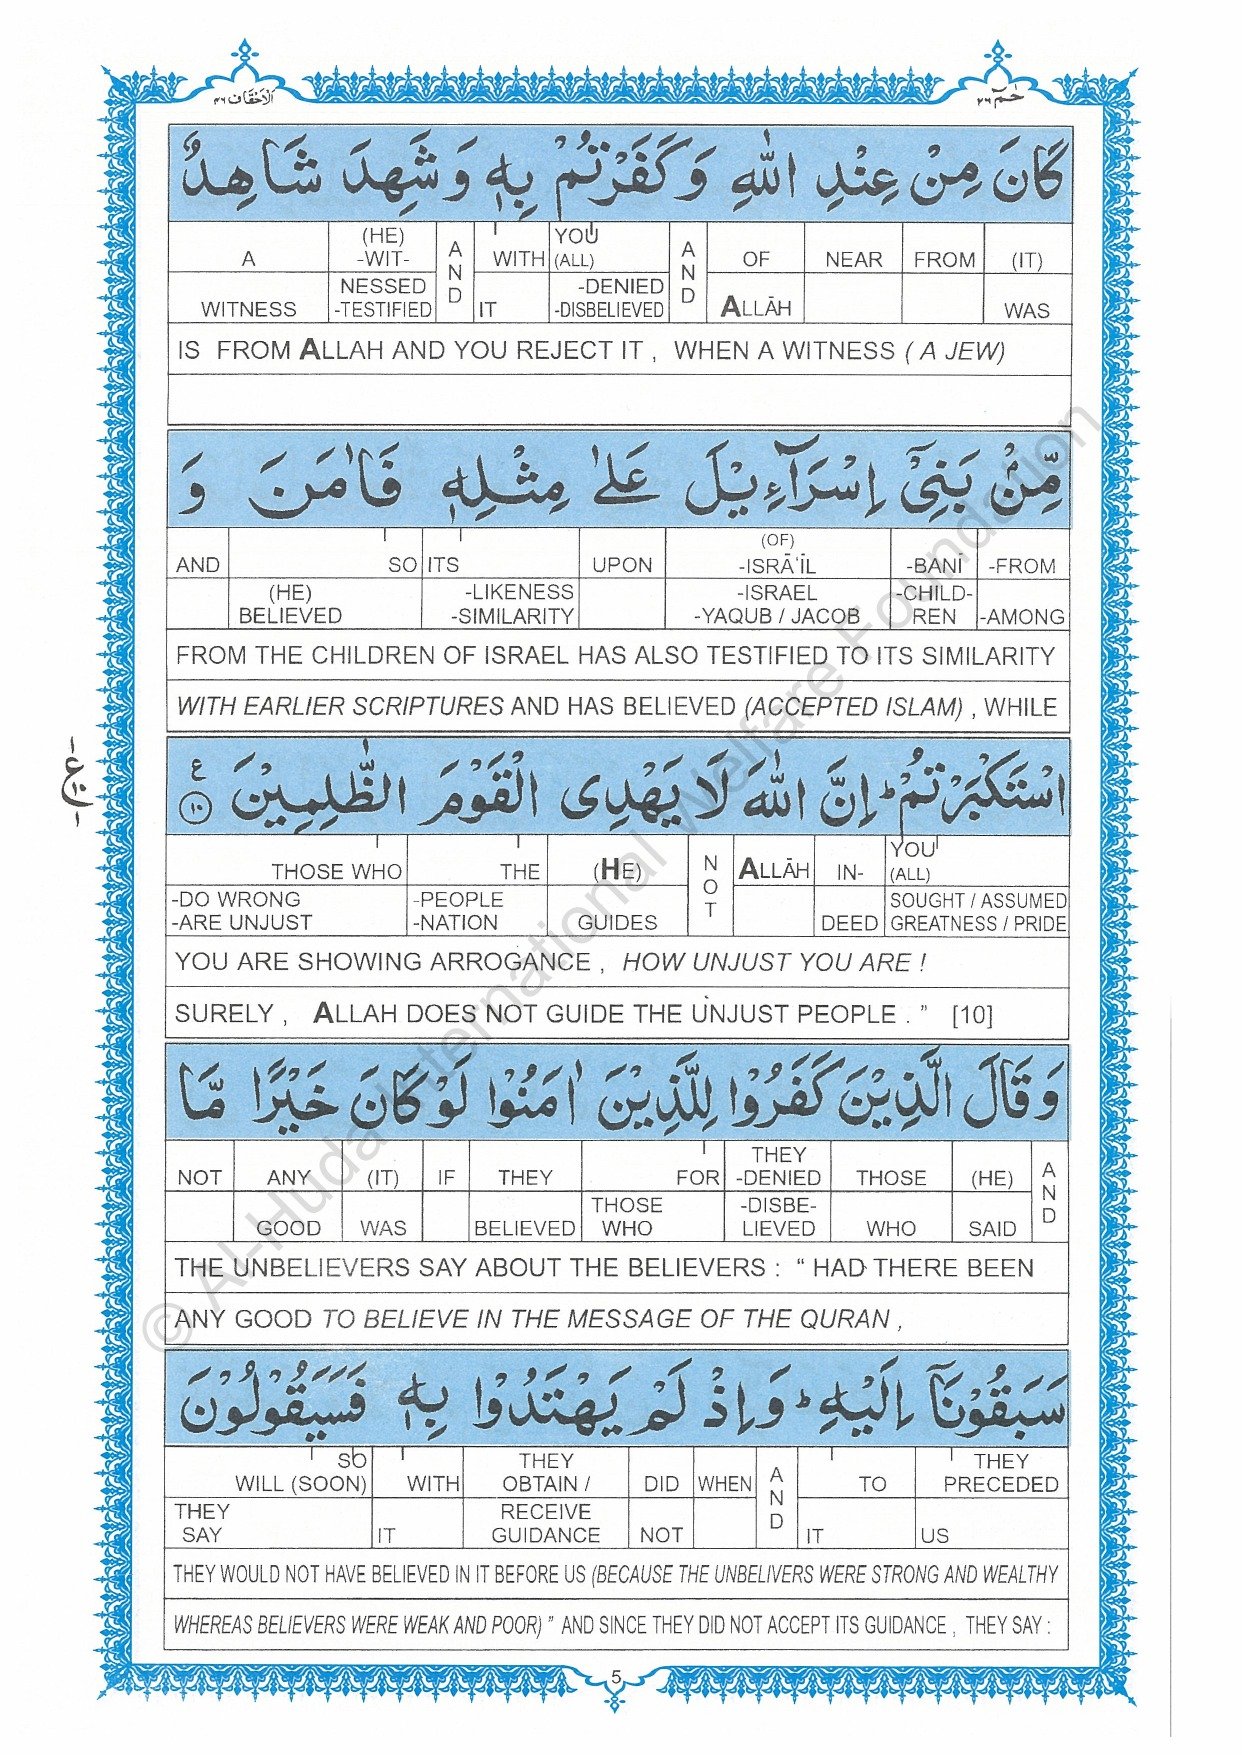 الاحقاف ٤٦ حٰمٓ ٢٦
كَانَ مِنْ عِنْدِ اللّٰهِ وَكَفَرْتُمْ بِهٖ وَشَهِدَ شَاهِدٌ
A WITNESS (HE) -WIT-NESSED -TESTIFIED AND WITH IT YOU (ALL) -DENIED -DISBELIEVED AND OF ALLĀH NEAR FROM (IT) WAS
IS FROM ALLAH AND YOU REJECT IT , WHEN A WITNESS ( A JEW)
مِّنْۢ بَنِيْٓ اِسْرَآءِيْلَ عَلٰى مِثْلِهٖ فَاٰمَنَ وَ
AND SO (HE) BELIEVED ITS -LIKENESS -SIMILARITY UPON (OF) -ISRĀ‘ĪL -ISRAEL -YAQUB / JACOB -BANĪ -CHILD-REN -FROM -AMONG
FROM THE CHILDREN OF ISRAEL HAS ALSO TESTIFIED TO ITS SIMILARITY
WITH EARLIER SCRIPTURES AND HAS BELIEVED (ACCEPTED ISLAM) , WHILE
اسْتَكْبَرْتُمْ ؕ اِنَّ اللّٰهَ لَا يَهْدِى الْقَوْمَ الظّٰلِمِيْنَ ١٠ ع
ع ١٠ ١
THOSE WHO -DO WRONG -ARE UNJUST THE -PEOPLE -NATION (HE) GUIDES NOT ALLĀH IN-DEED YOU (ALL) SOUGHT / ASSUMED GREATNESS / PRIDE
YOU ARE SHOWING ARROGANCE , HOW UNJUST YOU ARE !
SURELY , ALLAH DOES NOT GUIDE THE UNJUST PEOPLE . ” [10]
وَقَالَ الَّذِيْنَ كَفَرُوْا لِلَّذِيْنَ اٰمَنُوْا لَوْ كَانَ خَيْرًا مَّا
NOT ANY GOOD (IT) WAS IF THEY BELIEVED FOR THOSE WHO THEY -DENIED -DISBE-LIEVED THOSE WHO (HE) SAID AND
THE UNBELIEVERS SAY ABOUT THE BELIEVERS : “ HAD THERE BEEN
ANY GOOD TO BELIEVE IN THE MESSAGE OF THE QURAN ,
سَبَقُوْنَآ اِلَيْهِ ؕ وَاِذْ لَمْ يَهْتَدُوْا بِهٖ فَسَيَقُوْلُوْنَ
SO WILL (SOON) THEY SAY WITH IT THEY OBTAIN / RECEIVE GUIDANCE DID NOT WHEN AND TO IT THEY PRECEDED US
THEY WOULD NOT HAVE BELIEVED IN IT BEFORE US (BECAUSE THE UNBELIVERS WERE STRONG AND WEALTHY
WHEREAS BELIEVERS WERE WEAK AND POOR) ” AND SINCE THEY DID NOT ACCEPT ITS GUIDANCE , THEY SAY :
5
© Al-Huda International Welfare Foundation